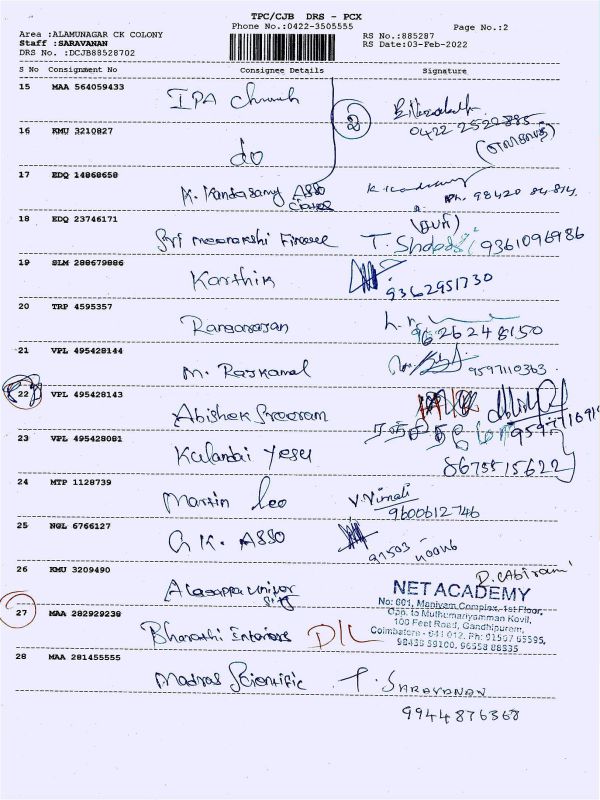 TPC/CJB DRS - PCX
Phone No.:0422-3505555
Page No.:2
Area :ALAMUNAGAR CK COLONY
RS No.:885287
Staff :SARAVANAN
RS Date:03-Feb-2022
DRS No. :DCJB88528702
S No Consignment No Consignee Details Signature
15 MAA 564059433
IPA Church
2
0422 2522885
16 KMU 3210827
do
17 EDQ 14868658
K. Kandasamy ASSO
Ph. 98420 84 814
18 EDQ 23746171
Sri meenakshi Finance T. Shobas 9361096986
19 SLM 288679886
Karthik
9362951730
20 TRP 4595357
Rangarajan
9626248150
21 VPL 495428144
M. Rajkamal 9597110363
22 VPL 495428143
Abishek Sooram
23 VPL 495428081
Kulandai Yesu
8675515622
24 MTP 1128739
Martin Leo V. Vimali
9600612746
25 NGL 6766127
G K. ASSO
26 KMU 3209490
D. Abirami
Alagappa Univer
sity
NET ACADEMY
No: 601, Maniyam Complex, 1st Floor,
Opp. to Muthumariyamman Kovil,
100 Feet Road, Gandhipuram,
Coimbatore - 641 012. Ph: 91597 65595,
98438 59100, 96558 88835
27 MAA 282929238
Bharathi Interiors D/L
28 MAA 281455555
Madras Scientific T. SARAVANAN
9944876368